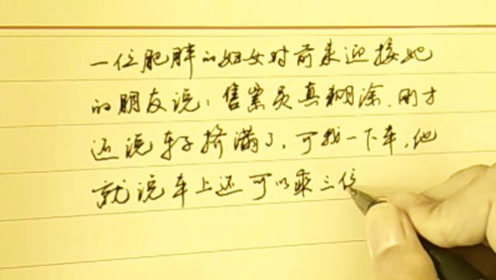 一位肥胖的妇女对前来迎接她
的朋友说：售票员真糊涂，刚才
还说车子挤满了，可我一下车，他
就说车上还可以乘三位